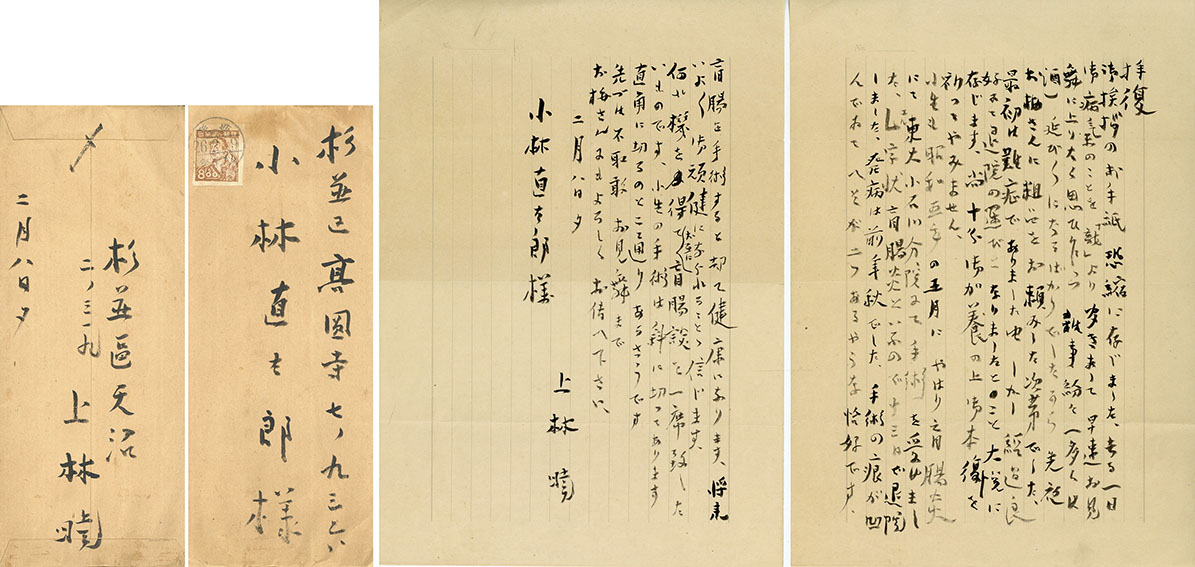 拝復
御挨拶のお手紙恐縮に存じました、去る一日
御病気のことを「龍」より聞きまして早速お見
舞に上りたく思ひ 雑事紛々 多くは
酒)延び〱になるばかりでしたから 先夜
お梅さんに粗 をお頼みした次第でした、
最初は難症でありました由 しかし経過良
好にて退院の運びになりましたとのこと大悦に
存じます、尚十分御加養の上御本復を
祈つてやみません、
小生も昭和五年の五月に やはり盲腸炎
にて東大小石川分院にて手術を受けまし
た、L字状盲腸炎といふので十三日で退院
しました、発病は前年秋でした、手術の痕が凹
んでゐてヘソが二つあるやうな恰好です、
盲腸を手術すると却て健康になります、将来
いよ〱御頑健になられることゝ信じます、
何れ機を得て大いに盲腸談を一席致した
いものです、小生の手術は斜に切つてあります
直角に切るのと二通りあるさうです
先づは不取敢お見舞まで
お梅さんにもよろしくお伝へ下さい、
二月八日夕
上林 暁
小林直太郎様
杉並区高圓寺七ノ九三六
小林直太郎様
800
〆
杉並區天沼
二ノ三一九
上林暁
二月八日夕